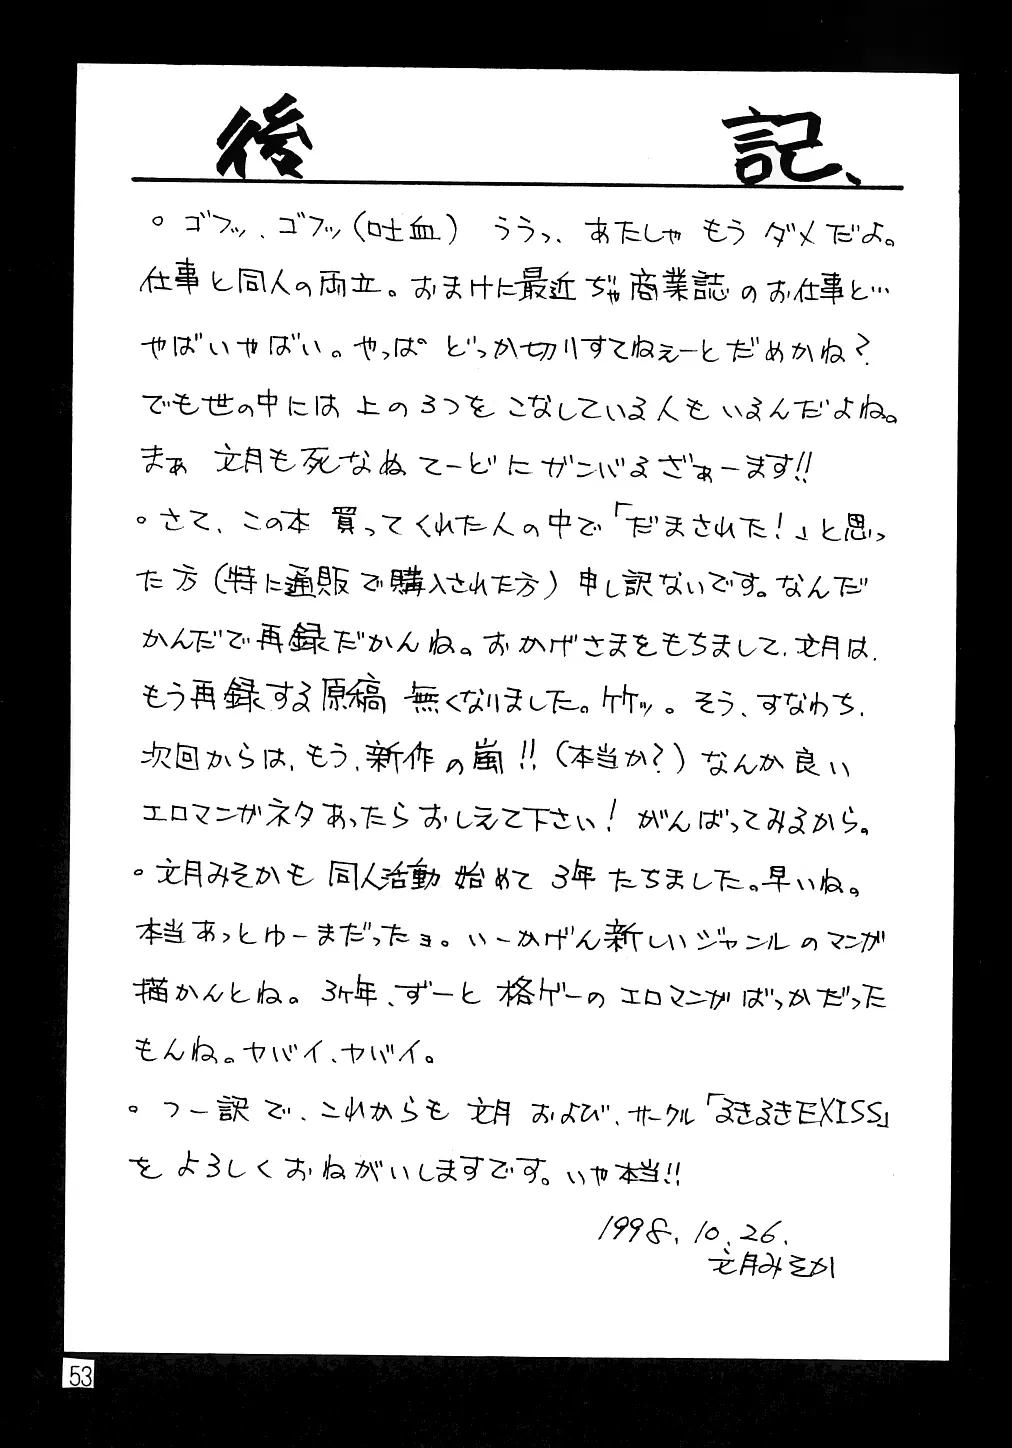 後記、
○ゴフッ、ゴフッ(吐血) ううっ、あたしゃ もう ダメだよ。
仕事と同人の両立。おまけに最近ぢゃ商業誌のお仕事と…
やばいやばい。やっぱ どっか切りすてねぇーとだめかね?
でも世の中には 上の3つを こなしている人も いるんだよね。
まぁ 文月も死なぬてーどにガンバるざぁーます!!
○さて、この本 買ってくれた人の中で「だまされた!」と思っ
た方(特に通販で購入された方) 申し訳ないです。なんだ
かんだで再録だかんね。おかげさまをもちまして、文月は、
もう再録する原稿 無くなりました。ケケッ。そう、すなわち、
次回からは、もう、新作の嵐!!(本当か?) なんか良い
エロマンガネタあったらおしえて下さい! がんばってみるから。
○文月みそかも 同人活動 始めて 3年 たちました。早いね。
本当あっとゆーまだったョ。いーかげん新しいジャンルのマンガ
描かんとね。3ヶ年、ずーと 格ゲーの エロマンガばっかだった
もんね。ヤバイ、ヤバイ。
○つー訳で、これからも 文月 および、サークル「るきるきEXISS」
を よろしくおねがいしますです。いや本当!!
1998.10.26.
文月みそか
53